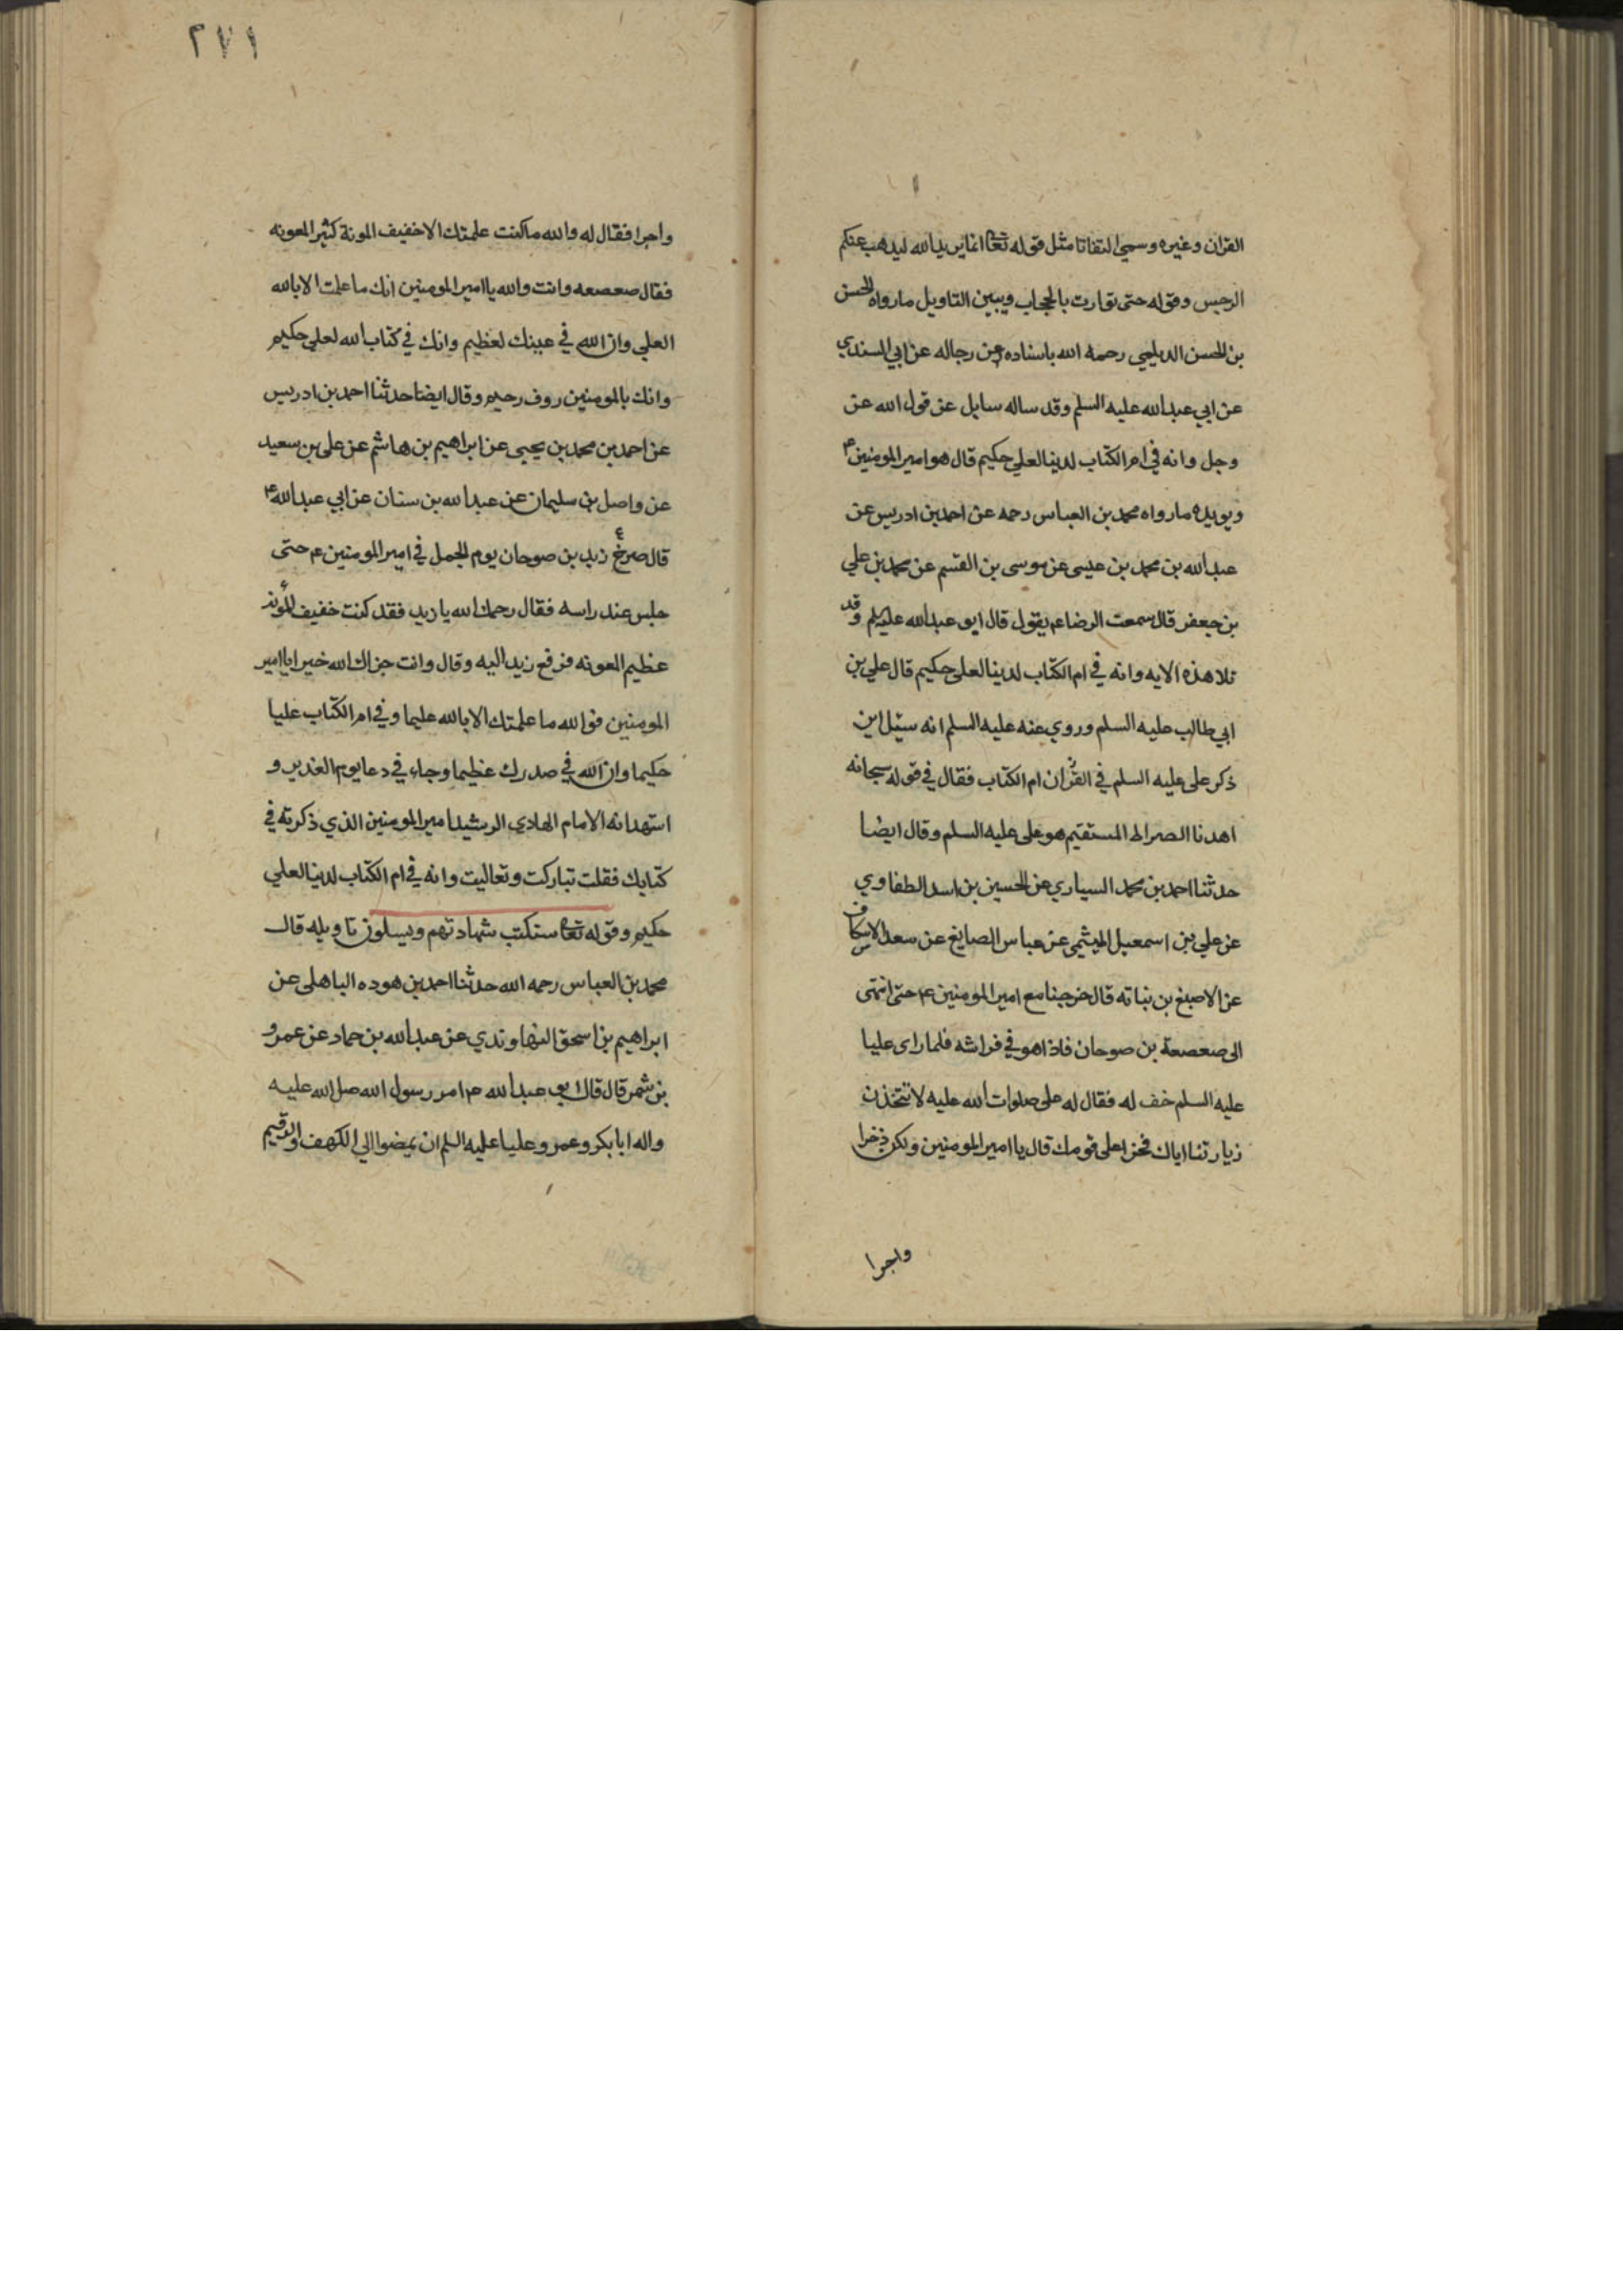 القران وغيره وسمي التفاتا مثل قوله تعا انما يريد الله ليذهب عنكم
الرجس وقوله حتى توارت بالحجاب ويبين التاويل ما رواه الحسن
بن الحسن الديلمي رحمه الله باسناده عن رجاله عن ابي السندي
عن ابي عبد الله عليه السلم وقد ساله سايل عن قول الله عز
وجل وانه في ام الكتاب لدينا لعلي حكيم قال هو امير المومنين ع
ويويده ما رواه محمد بن العباس رحمه عن احمد بن ادريس عن
عبد الله بن محمد بن عيسى عن موسى بن القسم عن محمد بن علي
بن جعفر قال سمعت الرضا ع يقول قال ابو عبد الله عليلم وقد
تلا هذه الايه وانه في ام الكتاب لدينا لعلي حكيم قال علي بن
ابي طالب عليه السلم وروي عنه عليه السلم انه سئل اين
ذكر علي عليه السلم في القران ام الكتاب فقال في قوله سبحانه
اهدنا الصراط المستقيم هو علي عليه السلم وقال ايضا
حدثنا احمد بن محمد السياري عن الحسين بن اسد الطفاوي
عن علي بن اسمعيل الميثمي عن عباس الصايغ عن سعد الاسكاف
عن الاصبغ بن نباته قال خرجنا مع امير المومنين ع حتى انتهى
الى صعصعة بن صوحان فاذا هو في فراشه فلما راى عليا
عليه السلم خف له فقال له علي صلوات الله عليه لا تتخذن
زيارتنا اياك فخرا على قومك قال يا امير المومنين ولكن ذخرا
واجرا
٢٧١
واجرا فقال له والله ما كنت علمتك الا خفيف المونة كثير المعونه
فقال صعصعه وانت والله يا امير المومنين انك ما علمت الا بالله
العلي وان الله في عينك لعظيم وانك في كتاب الله لعلي حكيم
وانك بالمومنين روف رحيم وقال ايضا حدثنا احمد بن ادريس
عن احمد بن محمد بن يحيى عن ابراهيم بن هاشم عن علي بن سعيد
عن واصل بن سليمان عن عبد الله بن سنان عن ابي عبد الله ع
قال صرع زيد بن صوحان يوم الجمل في امير المومنين ع حتى
جلس عند راسه فقال رحمك الله يا زيد فقد كنت خفيف المونه
عظيم المعونه فرفع زيد اليه وقال وانت جزاك الله خيرا يا امير
المومنين فوالله ما علمتك الا بالله عليما وفي ام الكتاب عليا
حكيما وان الله في صدرك عظيما وجاء في دعا يوم الغدير و
استهدانه الامام الهادي الرشيد امير المومنين الذي ذكرته في
كتابك فقلت تباركت وتعاليت وانه في ام الكتاب لدينا لعلي
حكيم وقوله تعا ستكتب شهادتهم ويسلون تاويله قال
محمد بن العباس رحمه الله حدثنا احمد بن هوده الباهلي عن
ابراهيم بن اسحق النهاوندي عن عبد الله بن حماد عن عمرو
بن شمر قال قال ابو عبد الله ع امر رسول الله صلى الله عليه
واله ابا بكر وعمر وعليا عليه السلم ان يمضوا الى الكهف والرقيم